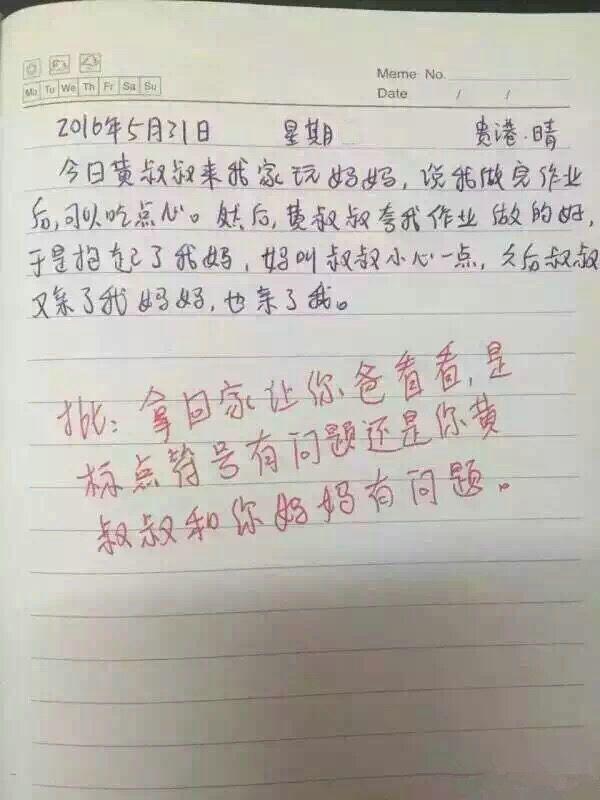 Meme No.
Mo Tu We Th Fr Sa Su
Date / /
2016年5月31日 星期 贵港.晴
今日黄叔叔来我家玩妈妈，说我做完作业
后，可以吃点心。然后，黄叔叔夸我作业做的好，
于是抱起了我妈，妈叫叔叔小心一点，之后叔叔
又亲了我妈妈，也亲了我。
批：拿回家让你爸看看，是
标点符号有问题还是你黄
叔叔和你妈妈有问题。